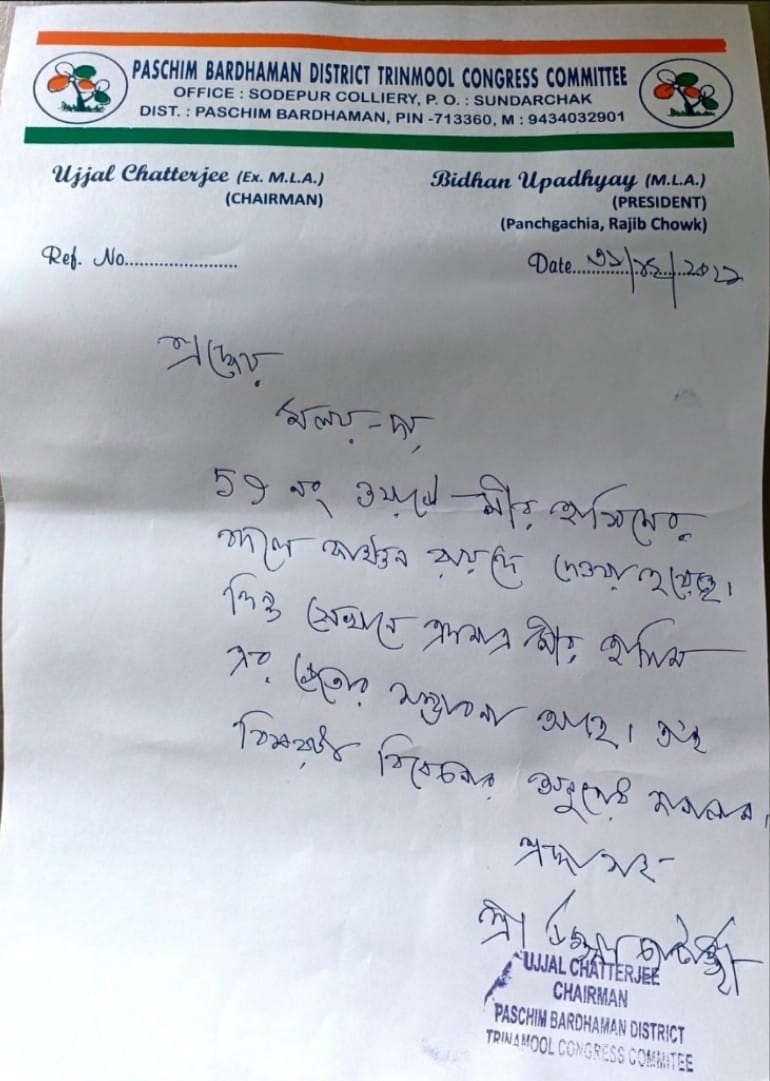 PASCHIM BARDHAMAN DISTRICT TRINMOOL CONGRESS COMMITTEE
OFFICE : SODEPUR COLLIERY, P. O. : SUNDARCHAK
DIST. : PASCHIM BARDHAMAN, PIN -713360, M : 9434032901
Ujjal Chatterjee (Ex. M.L.A.)
(CHAIRMAN)
Bidhan Upadhyay (M.L.A.)
(PRESIDENT)
(Panchgachia, Rajib Chowk)
Ref. No......................
Date
শ্রদ্ধেয়
মলয়-দা,
নং ওয়ার্ডে মীর হাসিমের
বদলে দেওয়া হয়েছে।
কিন্তু সেখানে একমাত্র মীর হাসিম
এর জেতার সম্ভাবনা আছে। তাই
বিষয়টি বিবেচনার অনুরোধ জানালাম।
শ্রদ্ধা সহ-
শ্রী উজ্জ্বল চ্যাটার্জী
UJJAL CHATTERJEE
CHAIRMAN
PASCHIM BARDHAMAN DISTRICT
TRINAMOOL CONGRESS COMMITEE